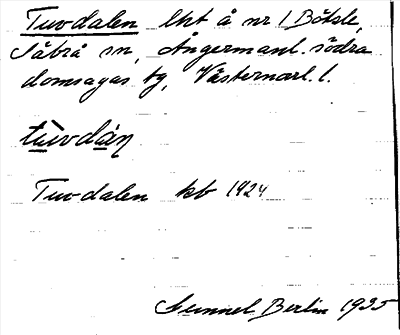 Tuvdalen lht å nr 1 Bölsle,
Säbrå sn, Ångermanl. södra
domsagas tg, Västernorl. l.
tùvdán
Tuvdalen kb 1924
Gunnel Berlin 1935